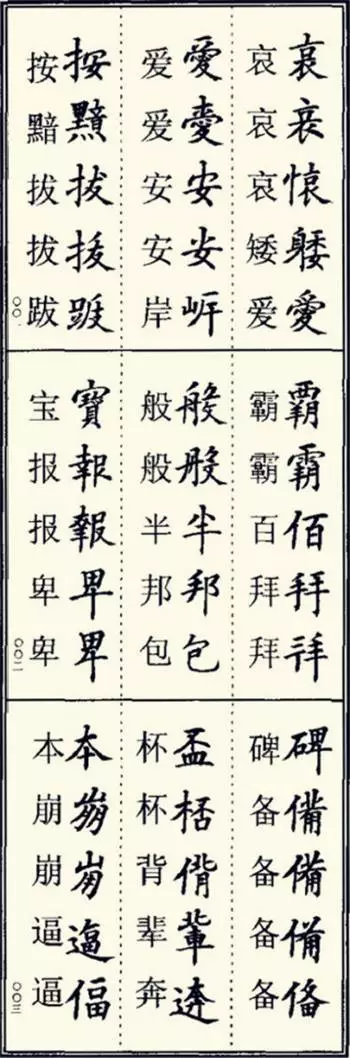 哀愛
哀哀哀矮爱
愛安
爱爱安安岸
按黯拔
按黯拔拔跋
霸佰
霸霸百拜拜
般般半邦包
般般半邦包
寶報報卑卑
宝报报卑卑
碑備備
碑备备备备
盃桮偝輩
杯杯背辈奔
本逼偪
本崩崩逼逼
〇〇一
〇〇二
〇〇三